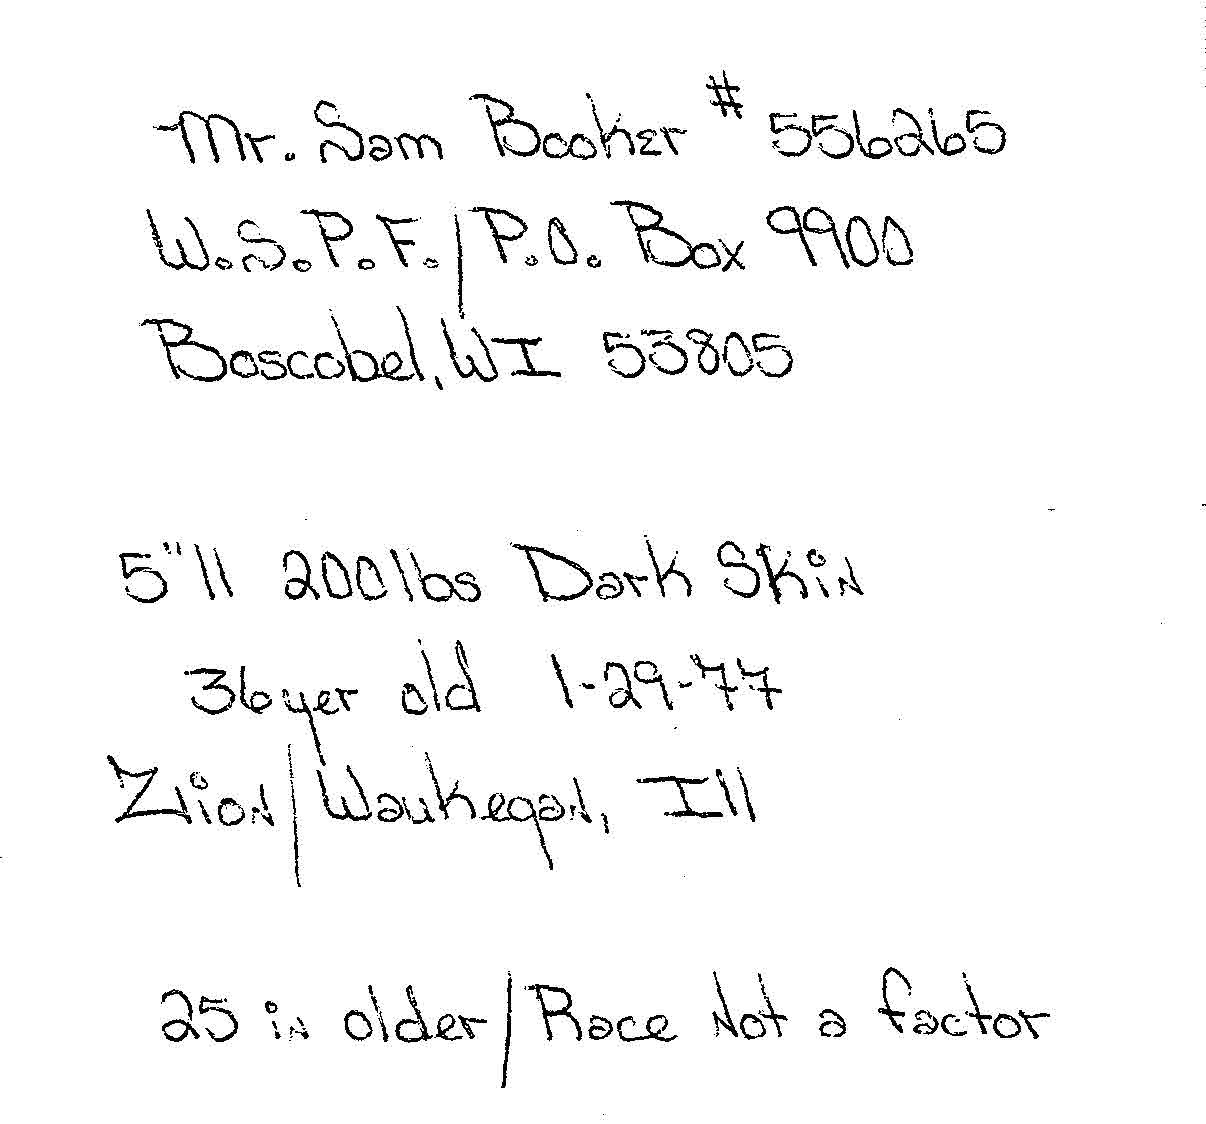 Mr. Sam Booker # 556265
W.S.P.F./P.O. Box 9900
Boscobel, WI 53805
5"11 200lbs Dark Skin
36yer old 1-29-77
Zion/Waukegan, Ill
25 in older/Race Not a factor